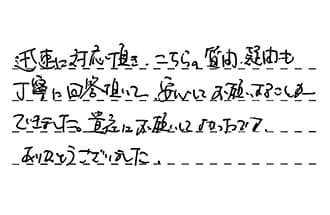 迅速に対応頂き、こちらの質問、疑問も
丁寧に回答頂いて、安心してお願いすることが
できました。貴社にお願いしてよかったです。
ありがとうございました。